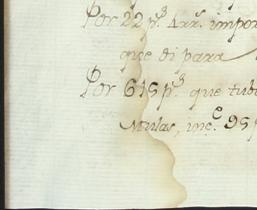 Por 22 p.s 4 rr.s impor
que di para
Por 615 p.s que tub
Mulas, inc.e 95 p